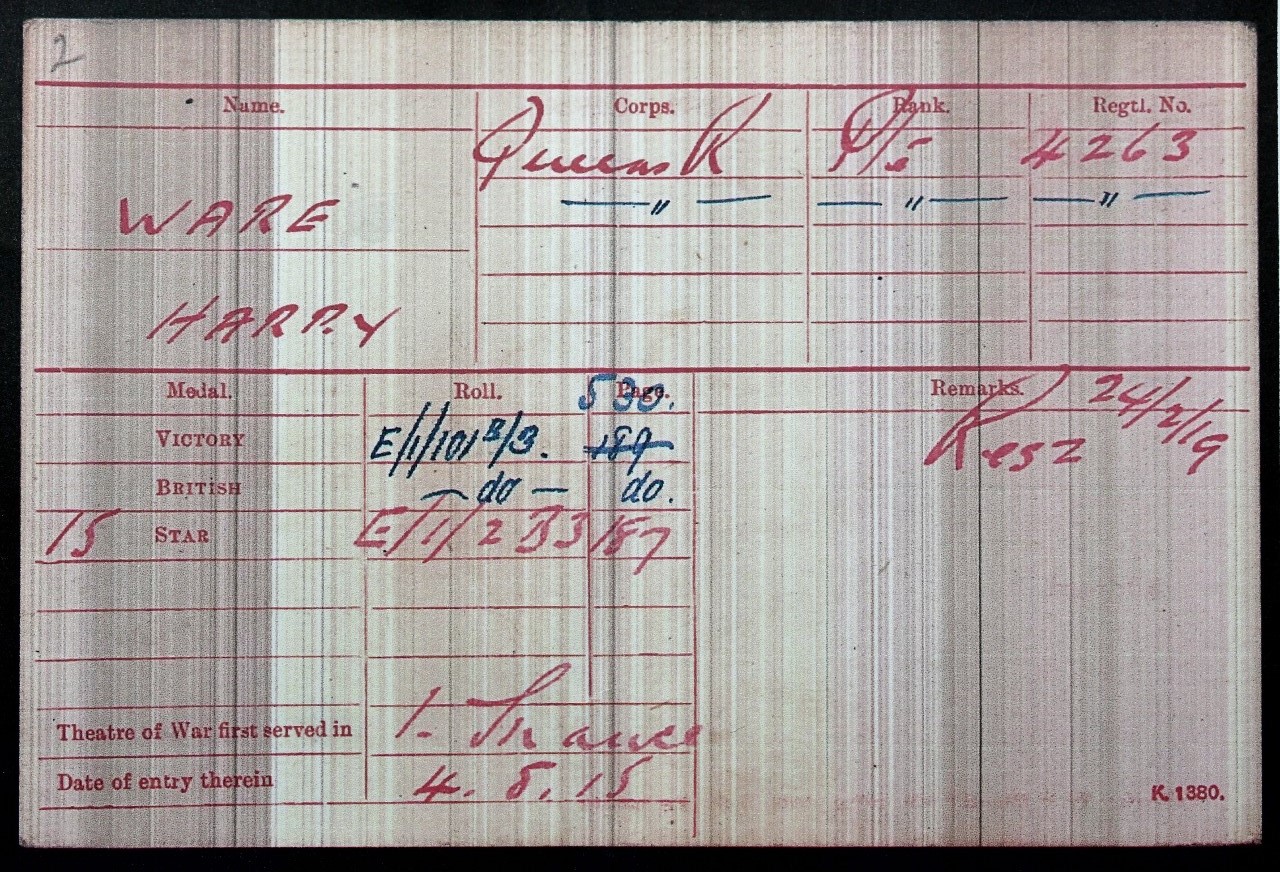 2
Name. Corps. Rank. Regtl. No.
Queens R P/S 4263
WARE — " — — " — — " —
HARRY
Medal. Roll. Page. Remarks.
530. 24/2/19
VICTORY E/1/101 B/3. 189 Res Z
BRITISH — do — do.
15 STAR E/1/2 B3 187
Theatre of War first served in 1. France
Date of entry therein 4.5.15
K. 1380.